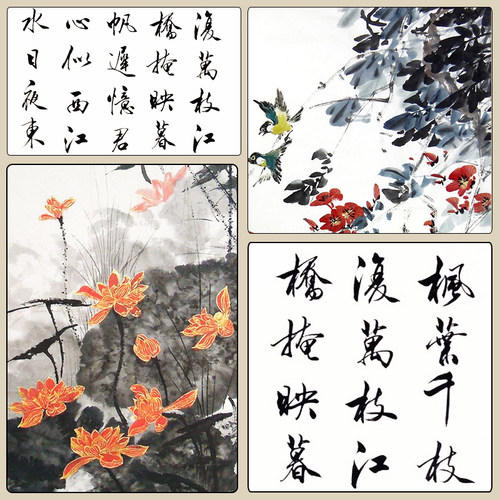 復萬枝江
橋掩映暮
帆遲憶君
心似西江
水日夜東
楓葉千枝
復萬枝江
橋掩映暮